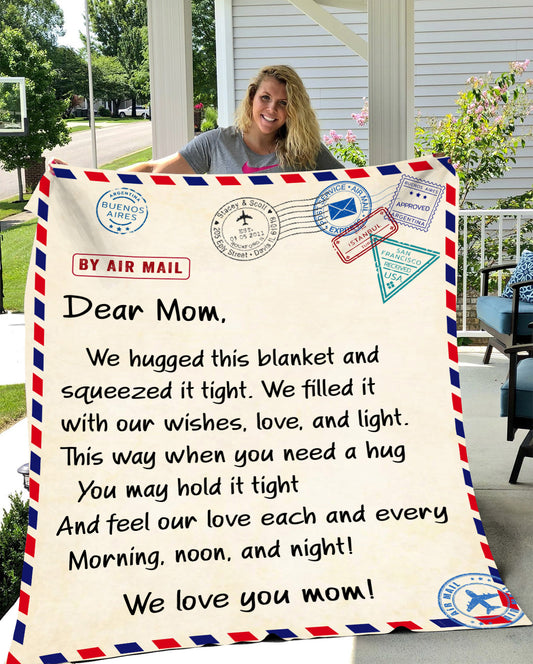 ARGENTINA
BUENOS
AIRES
Stacey & Scott
ESTD.
01 05 2011
205 Eply Street • Davis IL 61019
POST SERVICE • AIR MAIL
EXPRESS
APPROVED
ARGENTINA
ISTANBUL
SAN
FRANCISCO
RECEIVED
USA
BY AIR MAIL
Dear Mom,
We hugged this blanket and
squeezed it tight. We filled it
with our wishes, love, and light.
This way when you need a hug
You may hold it tight
And feel our love each and every
Morning, noon, and night!
We love you mom!
AIR MAIL